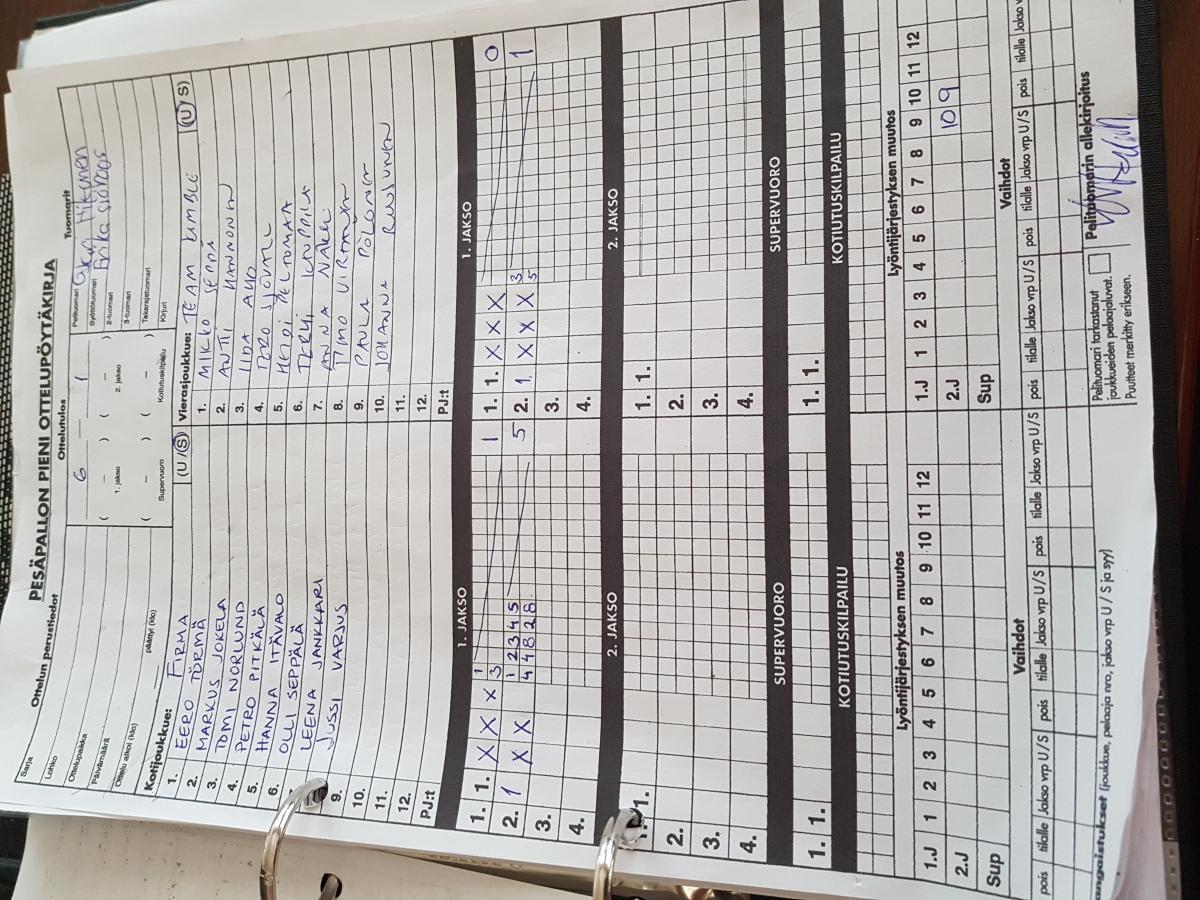 PESÄPALLON PIENI OTTELUPÖYTÄKIRJA
Ottelun perustiedot
Ottelutulos
Tuomarit
Sarja
Lohko
Ottelupaikka
Päivämäärä
Ottelu alkoi (klo)
päättyi (klo)
6 1
( – ) ( – )
1. jakso 2. jakso
( – ) ( – )
Supervuoro Kotiutuskilpailu
Pelituomari
Syöttötuomari Erika
2-tuomari
3-tuomari
Takarajatuomari
Kirjuri
Kotijoukkue: FIRMA (U/S)
1. EERO TÖRMÄ
2. MARKUS JOKELA
3. TOMI NORLUND
4. PETRO PITKÄLÄ
5. HANNA ITÄVALO
6. OLLI SEPPÄLÄ
LEENA JANKKARI
JUSSI VARJUS
9.
10.
11.
12.
PJ:t
Vierasjoukkue: TEAM RIMBLE (U/S)
1. MIKKO SEPPÄ
2. ANTTI HANNONEN
3. IIDA AHO
4. TERO
5. HEIDI PELTOMAA
6. TERHI
7. ANNA
8. TIMO VIRTANEN
9. PAULA PÖLÖNEN
10. JOHANNA RUUSUNEN
11.
12.
PJ:t
1. JAKSO 1. JAKSO
1. 1. X X X 1 3 1
2. 1 X X 1 2 3 4 5 5
4 4 8 2 8
3.
4.
1. 1. X X X 0
2. 1. X X X 3 5 1
3.
4.
2. JAKSO 2. JAKSO
1. 1.
2.
3.
4.
1. 1.
2.
3.
4.
SUPERVUORO SUPERVUORO
1. 1.
1. 1.
KOTIUTUSKILPAILU KOTIUTUSKILPAILU
Lyöntijärjestyksen muutos
1.J 1 2 3 4 5 6 7 8 9 10 11 12
2.J
Sup
Lyöntijärjestyksen muutos
1.J 1 2 3 4 5 6 7 8 9 10 11 12
2.J 10 9
Sup
Vaihdot
pois tilalle Jakso vrp U/S pois tilalle Jakso vrp U/S pois tilalle Jakso vrp U/S
Vaihdot
pois tilalle Jakso vrp U/S pois tilalle Jakso vrp U/S pois tilalle Jakso
angaistukset (joukkue, pelaaja nro, jakso vrp U / S ja syy)
Pelituomari tarkastanut
joukkueiden pelaajaluvat.
Puutteet merkitty erikseen.
Pelituomarin allekirjoitus